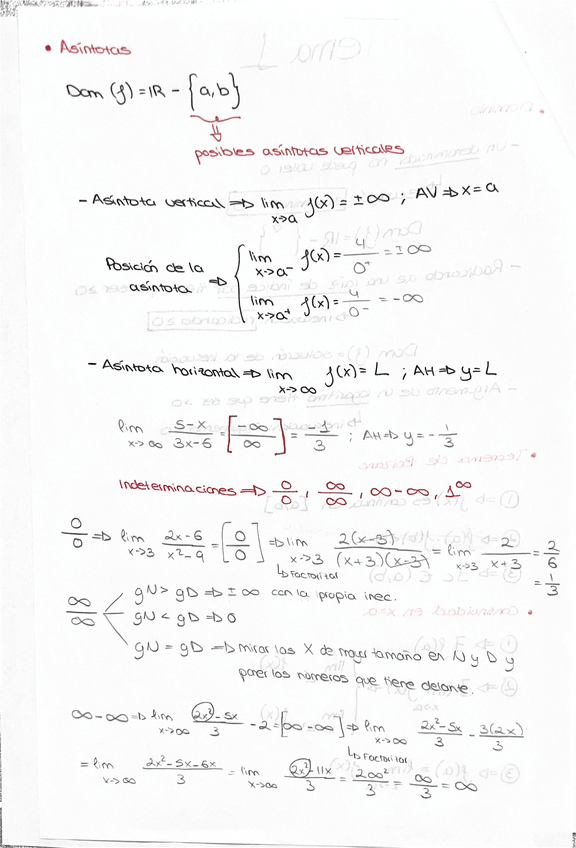 • Asíntotas
Dom (f) = IR - {a,b}
⇓
posibles asíntotas verticales
- Asíntota vertical ⇒ lim x→a f(x) = ±∞ ; AV ⇒ x = a
Posición de la asíntota ⇒ { lim x→a⁻ f(x) = 4/0⁺ = ±∞
lim x→a⁺ f(x) = 4/0⁻ = -∞
- Asíntota horizontal ⇒ lim x→∞ f(x) = L ; AH ⇒ y = L
lim x→∞ (5-x)/(3x-6) = [-∞/∞] = -1/3 ; AH ⇒ y = -1/3
Indeterminaciones ⇒ 0/0, ∞/∞, ∞-∞, 1^∞
0/0 ⇒ lim x→3 (2x-6)/(x²-9) = [0/0] ⇒ lim x→3 2(x-3)/((x+3)(x-3)) = lim x→3 2/(x+3) = 2/6
↳ Factorizar
= 1/3
∞/∞ gN > gD ⇒ ±∞ con la propia inec.
gN < gD ⇒ 0
gN = gD ⇒ mirar las X de mayor tamaño en N y D y
poner los números que tiene delante.
∞-∞ ⇒ lim x→∞ (2x²-5x)/3 - 2 = [∞-∞] ⇒ lim x→∞ (2x²-5x)/3 - 3(2x)/3
↳ Factorizar
= lim x→∞ (2x²-5x-6x)/3 = lim x→∞ (2x²-11x)/3 = 2∞²/3 = ∞/3 = ∞